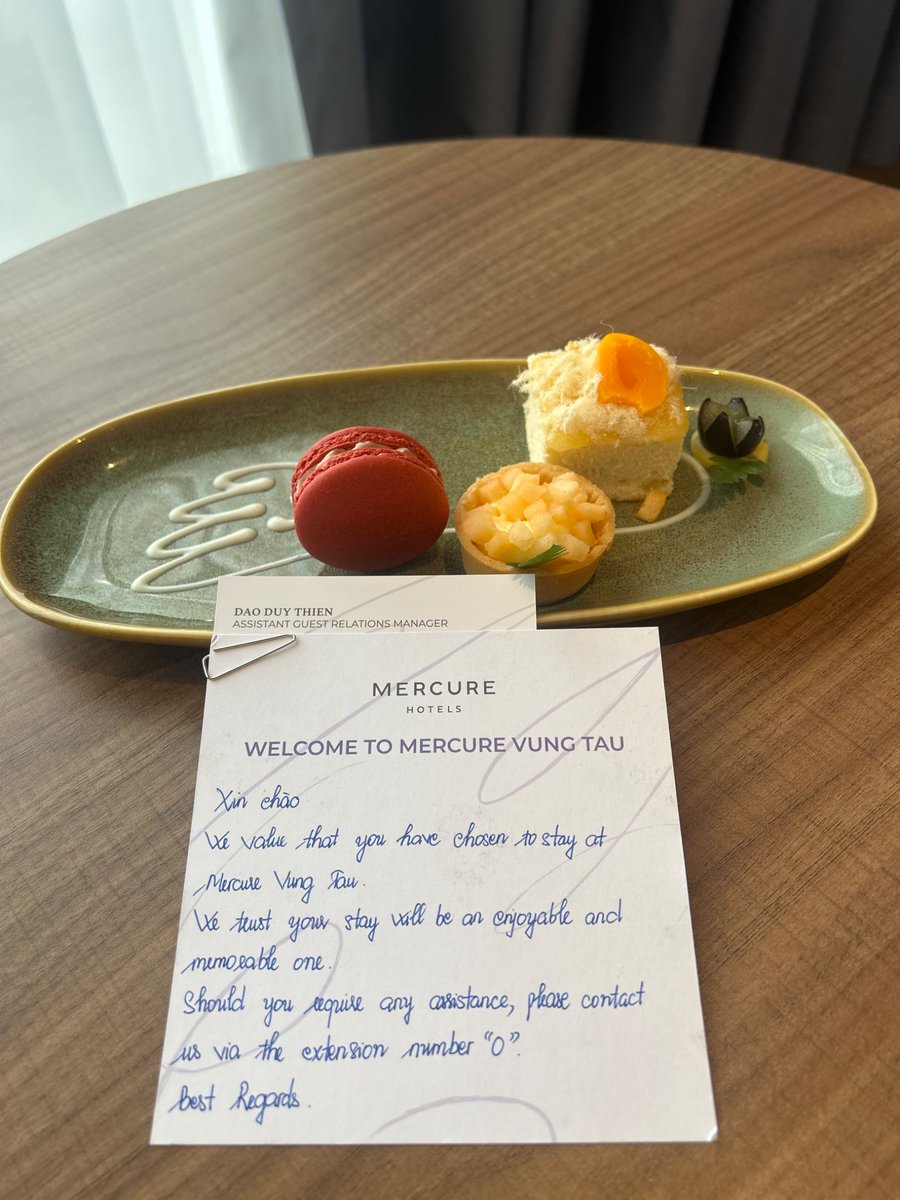 DAO DUY THIEN
ASSISTANT GUEST RELATIONS MANAGER
MERCURE
HOTELS
WELCOME TO MERCURE VUNG TAU
Xin chào
We value that you have chosen to stay at
Mercure Vung Tau.
We trust your stay will be an enjoyable and
memorable one.
Should you require any assistance, please contact
us via the extension number "0".
Best Regards.